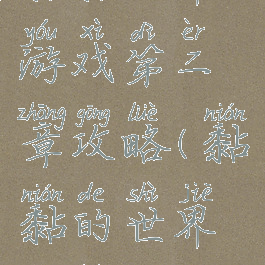 yóu xì dì èr
游戏第二
zhāng gōng lüè nián
章攻略(黏
nián de shì jiè
黏的世界